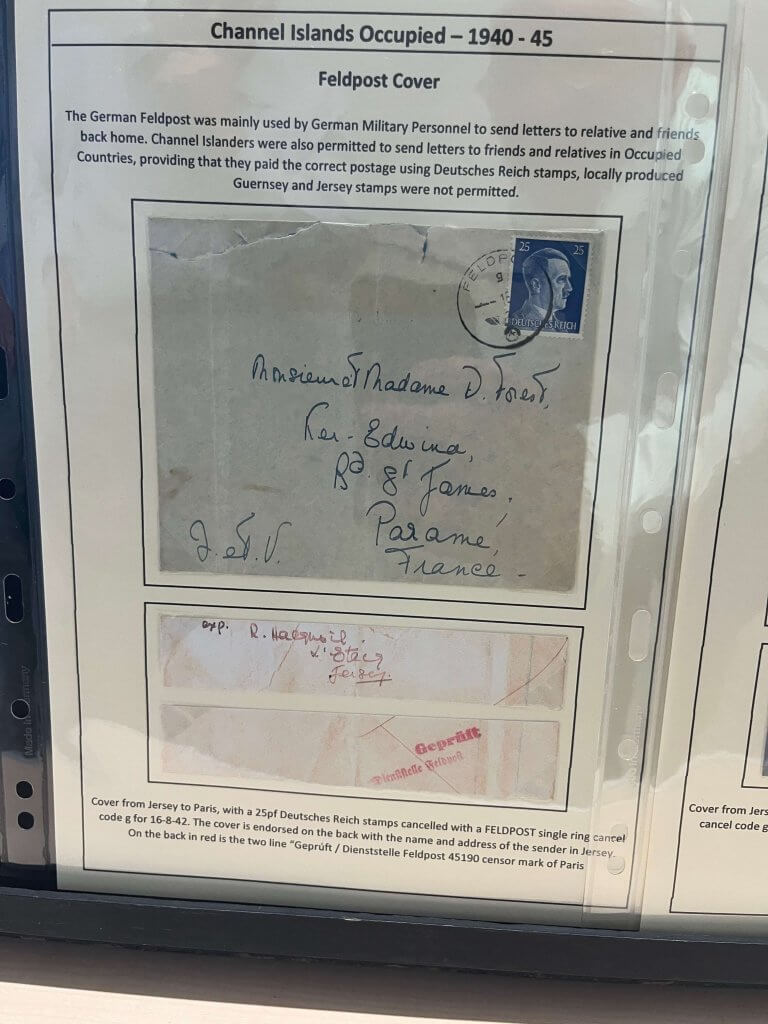 Channel Islands Occupied – 1940 - 45
Feldpost Cover
The German Feldpost was mainly used by German Military Personnel to send letters to relative and friends
back home. Channel Islanders were also permitted to send letters to friends and relatives in Occupied
Countries, providing that they paid the correct postage using Deutsches Reich stamps, locally produced
Guernsey and Jersey stamps were not permitted.
FELDPO
g
16
25 25
DEUTSCHES REICH
Monsieur et Madame D. Forest,
Ker-Edwina,
Bd. St James,
Paramé,
France -
J. et V.
exp. R. Hacquoil.
Jersey.
Geprüft
Dienststelle Feldpost
Cover from Jersey to Paris, with a 25pf Deutsches Reich stamps cancelled with a FELDPOST single ring cancel
code g for 16-8-42. The cover is endorsed on the back with the name and address of the sender in Jersey.
On the back in red is the two line "Geprúft / Dienststelle Feldpost 45190 censor mark of Paris
Cover from Jers
cancel code g
Made in Germany